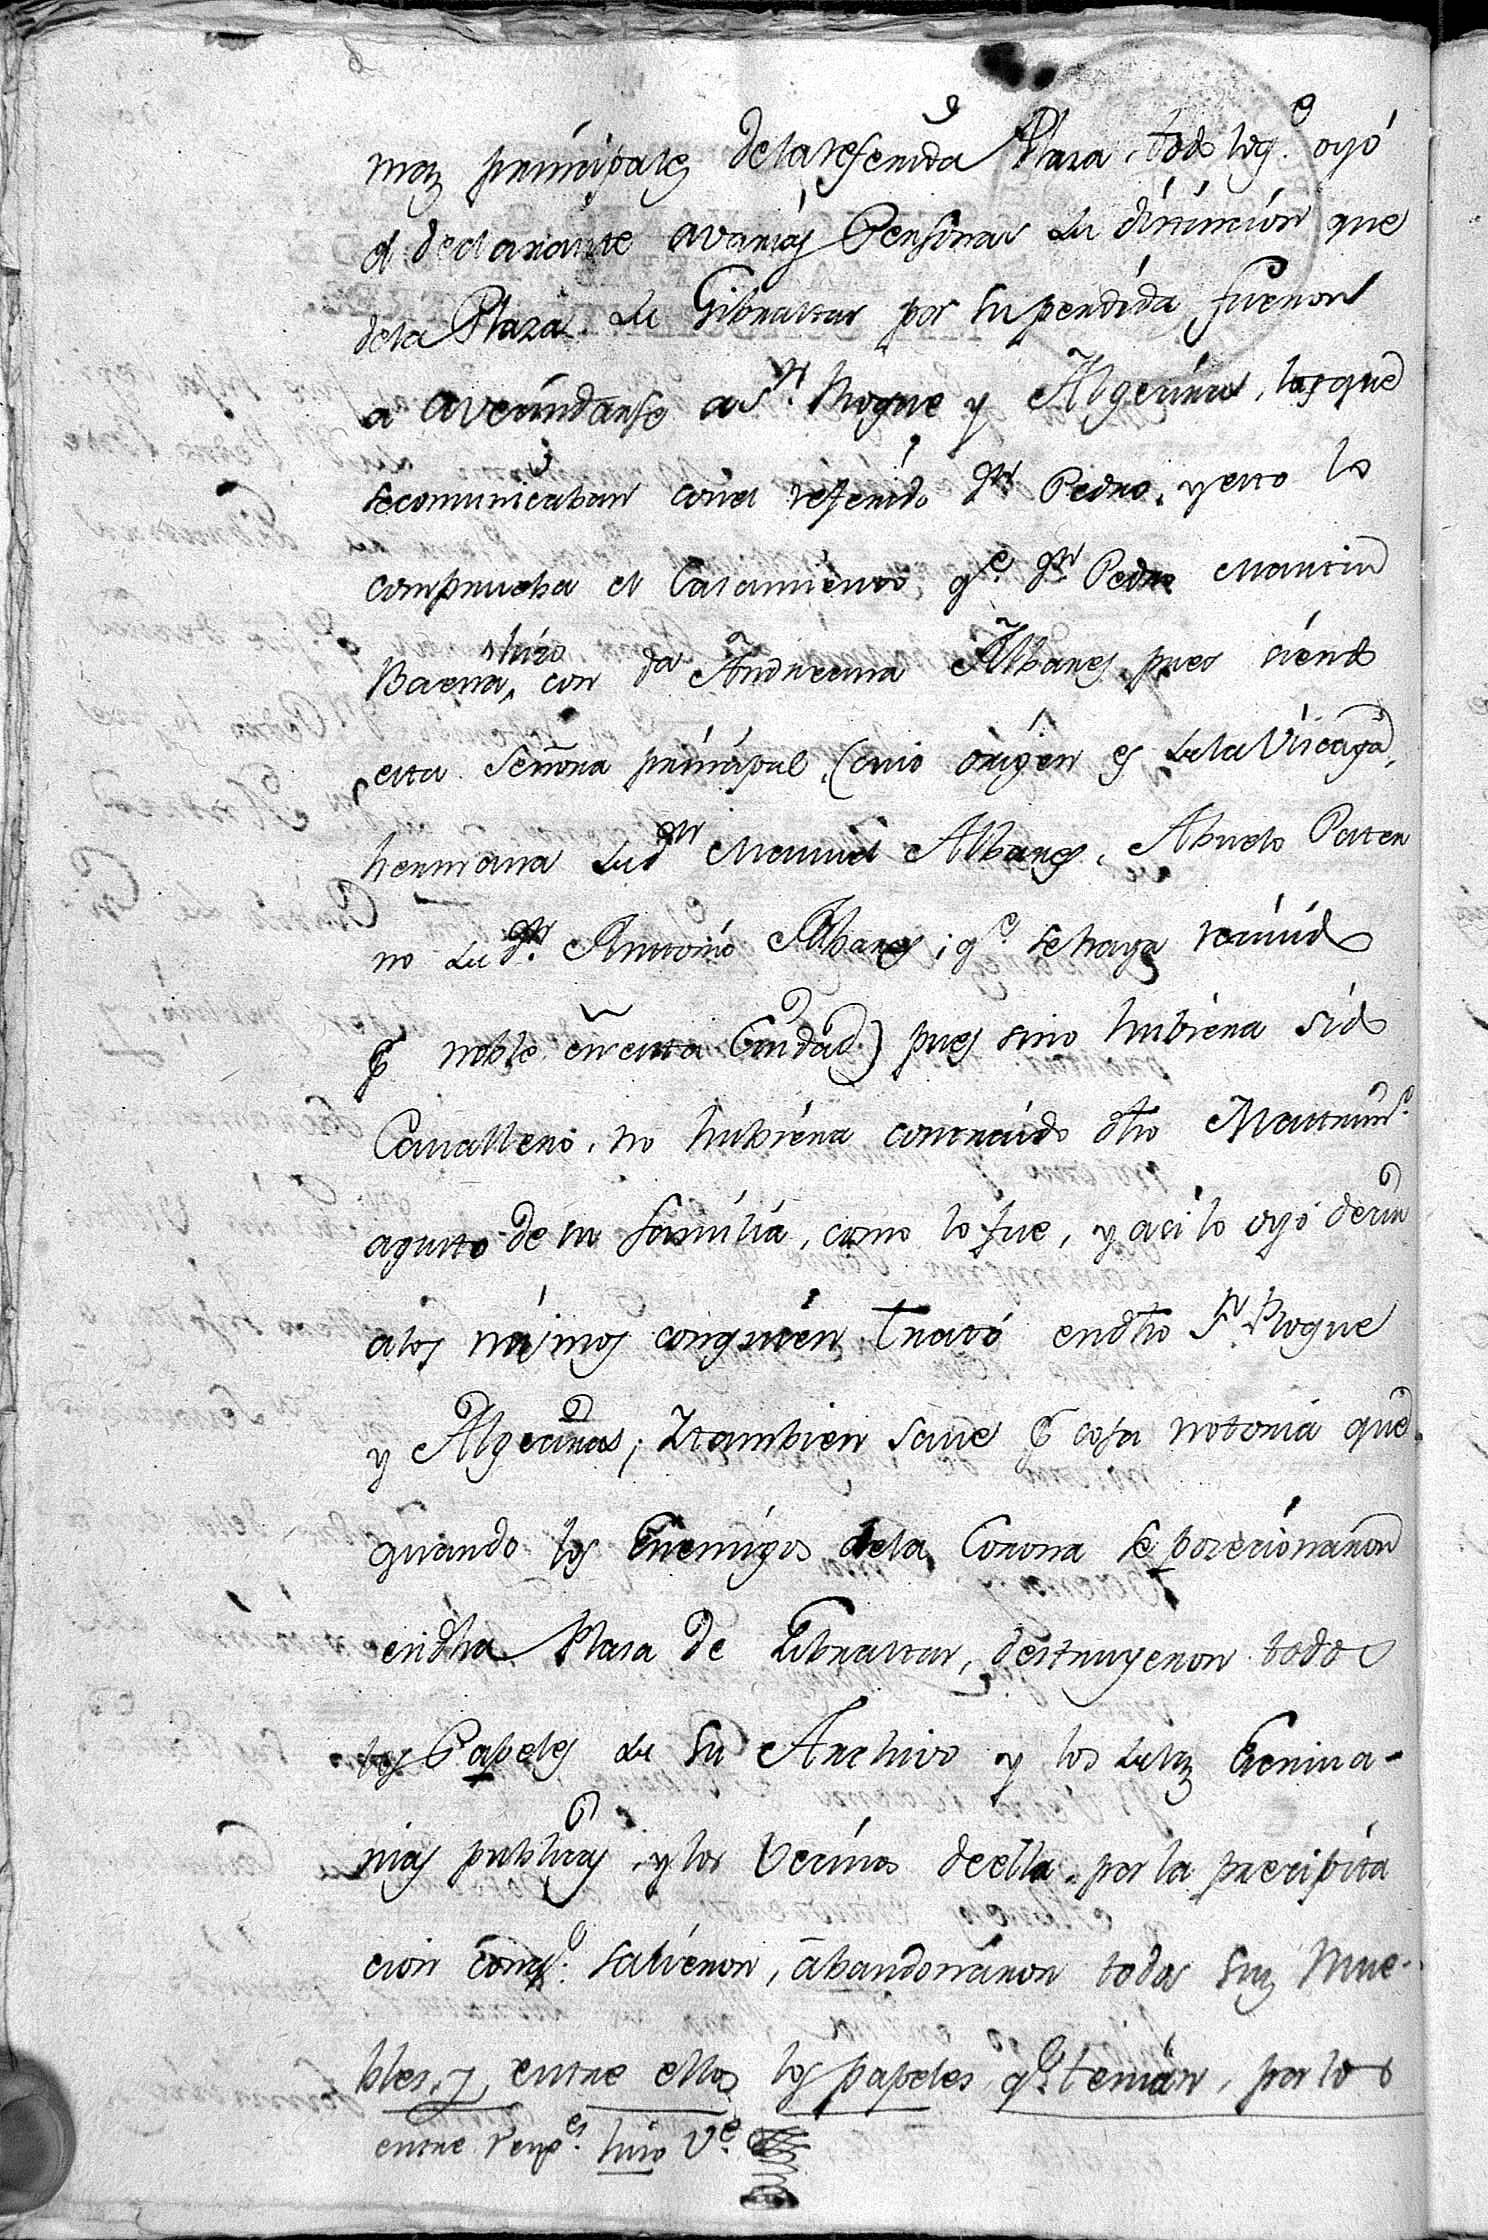 mas principales delareferida Plaza, todo loq.e oyó
el declarante avarias Personas de distincion que
dela Plaza de Gibraltar por su perdida fueron
a avecindarse a Sn. Roque y Algeciras, lasque
secomunicaban con el referido Dn Pedro, y esto lo
comprueba el Casamiento q.e Dn. Pedro Martin
Baena, hizo con da Andreana Albanes, pues siendo
esta Señora principal, (cuio origen es dela Viscaya,
hermana de dn Manuel Albanes, Abuelo Pater
no de Dn. Antonio Albanes, q.e se haya recivido
p noble en esta Ciudad) pues sino hubiera sido
Cavallero, no hubiera contraido dho Matrim.o
agusto de su familia, como lo fue, y asi lo oyó decir
alos mismos conquien trató endho Sn Roque
y Algeciras; Ytambien save p cosa notoria que
quando los Enemigos dela Corona se posecionaron
endha Plaza de Gibraltar, destruyeron todos
los Papeles de su Archivo y los delas Escriva-
nias publicas, y los Vecinos deella, por la precipita
cion conq.e salieron, abandonaron todos sus Mue-
bles, y entre ellos los papeles q.e tenian, por lo
entre reng.es hizo V.e